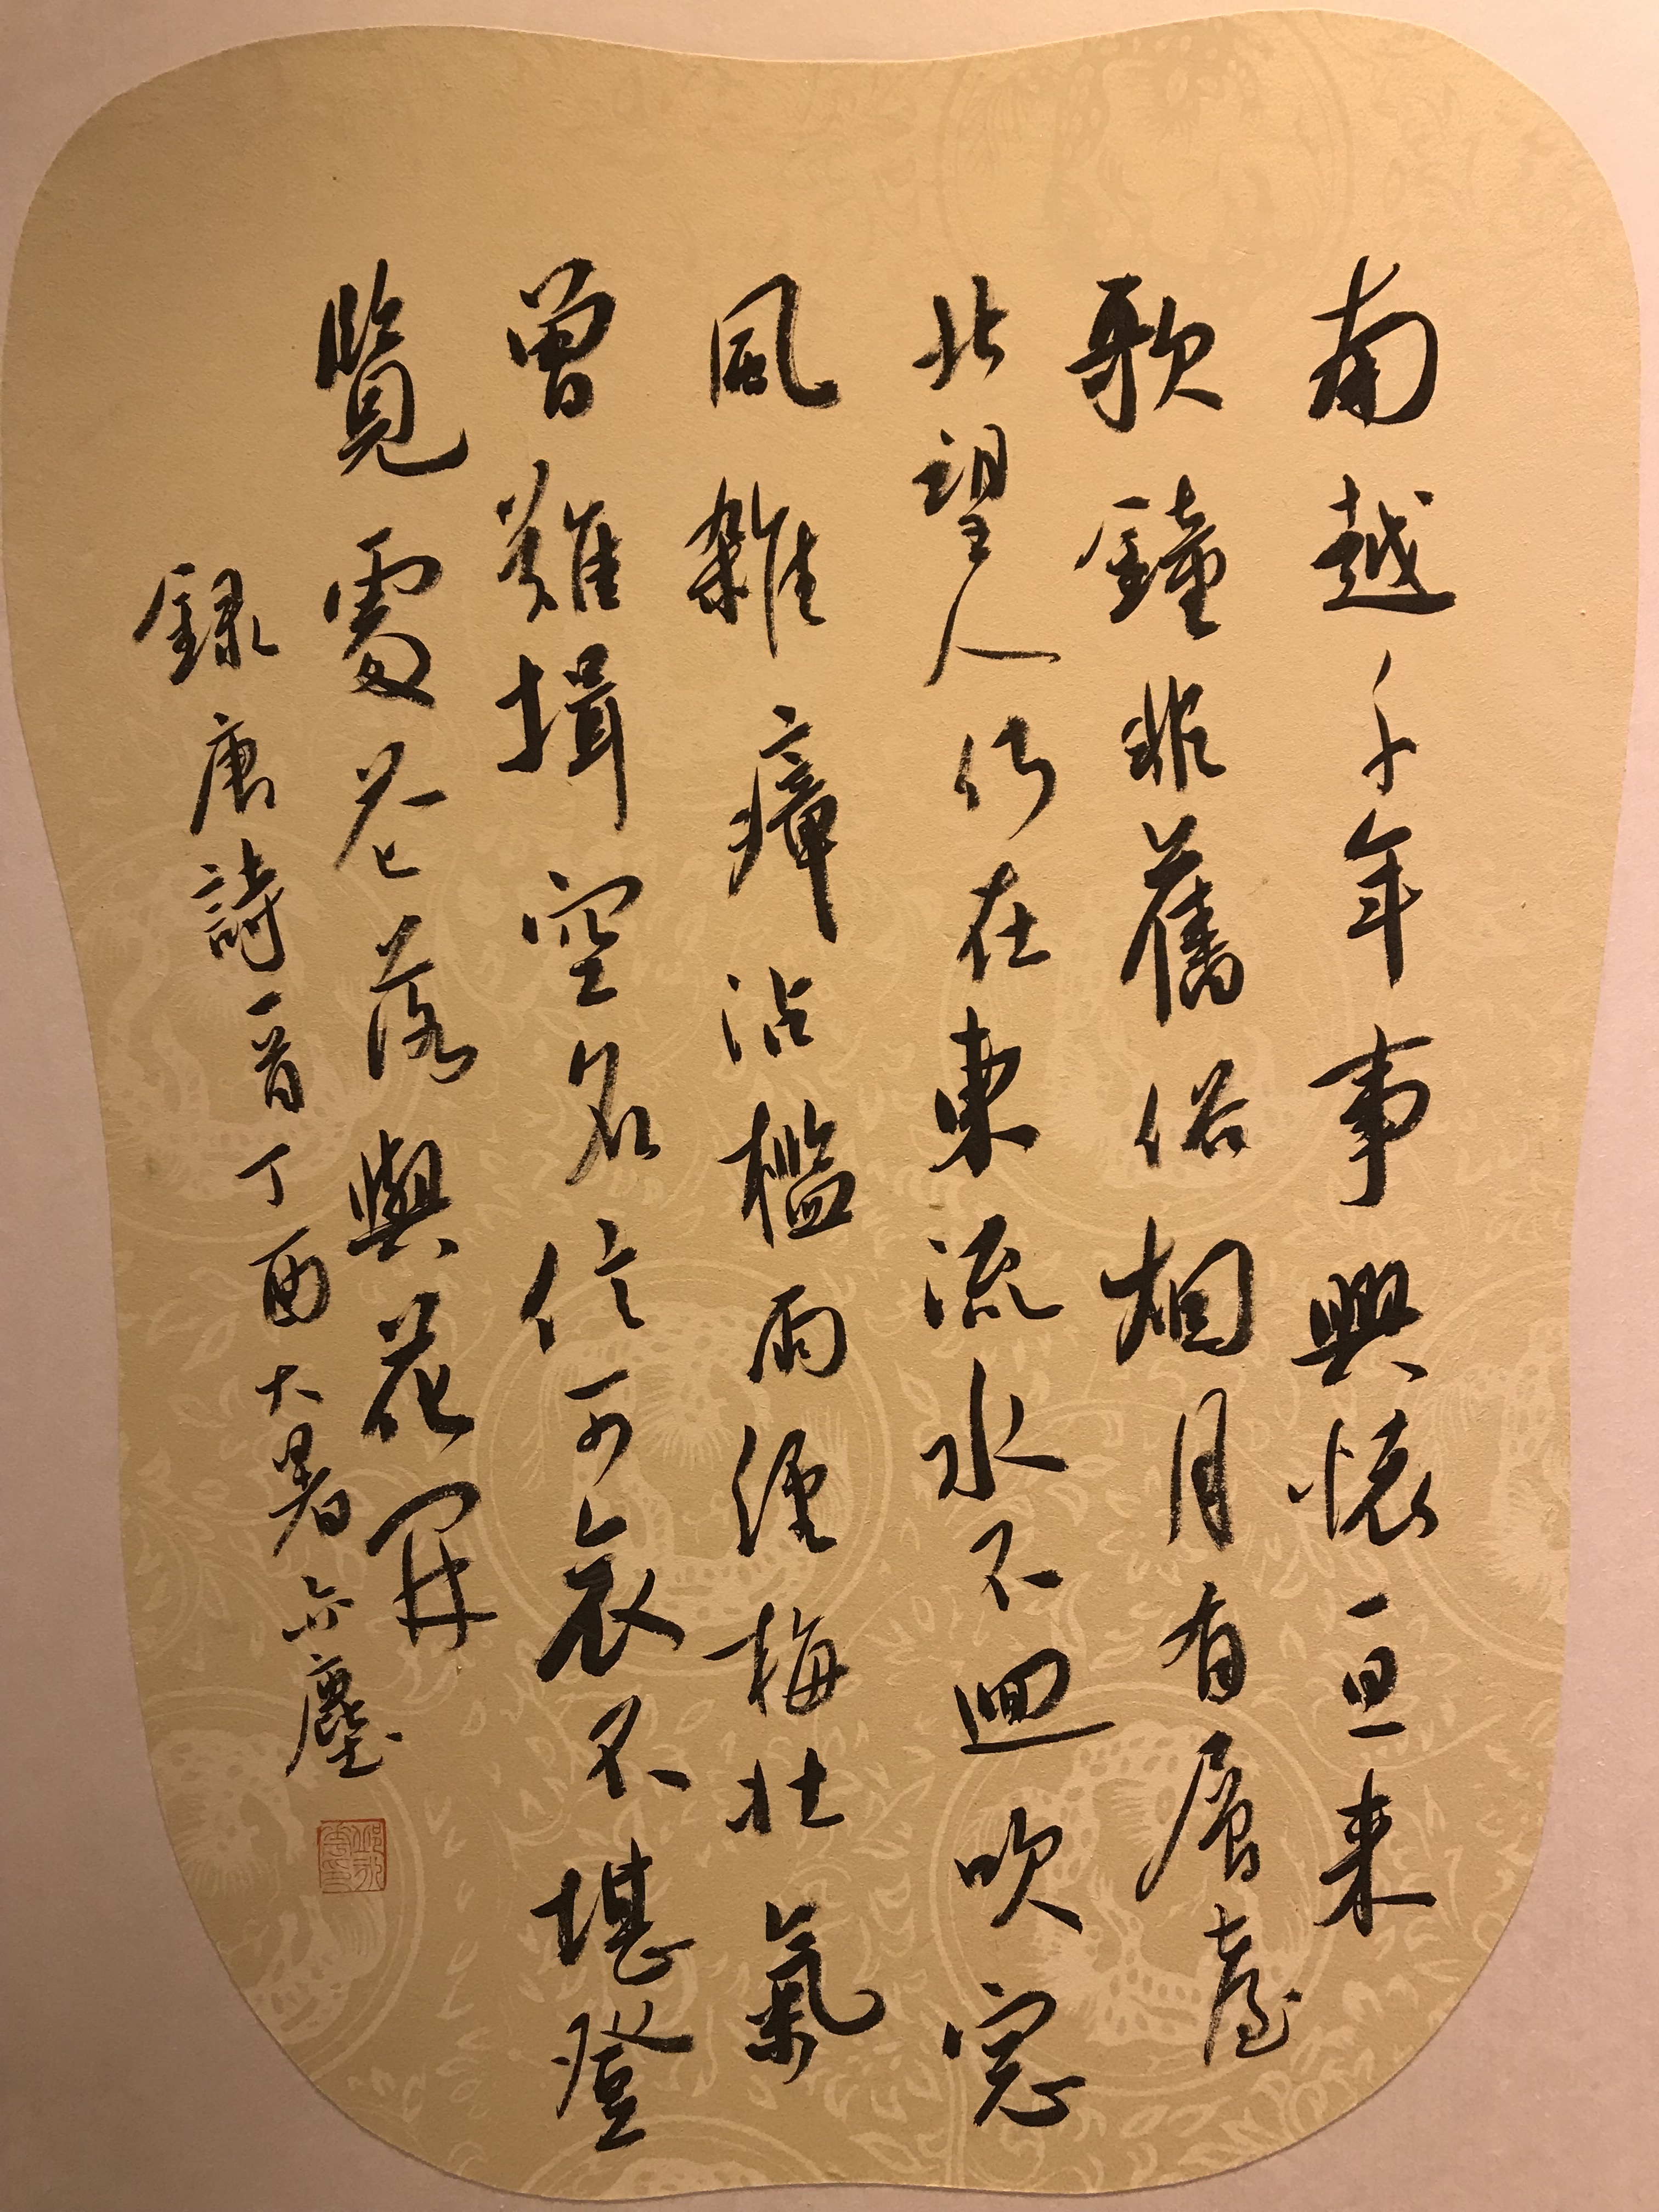 南越千年事興懷一旦来
歌鐘非舊俗烟月有層臺
北望人何在東流水不迴吹窓
風雜瘴沾檻雨經梅壯氣
曾難揖空名信可哀不堪登
覽處花落與花開
録唐詩一首丁酉大暑亦塵